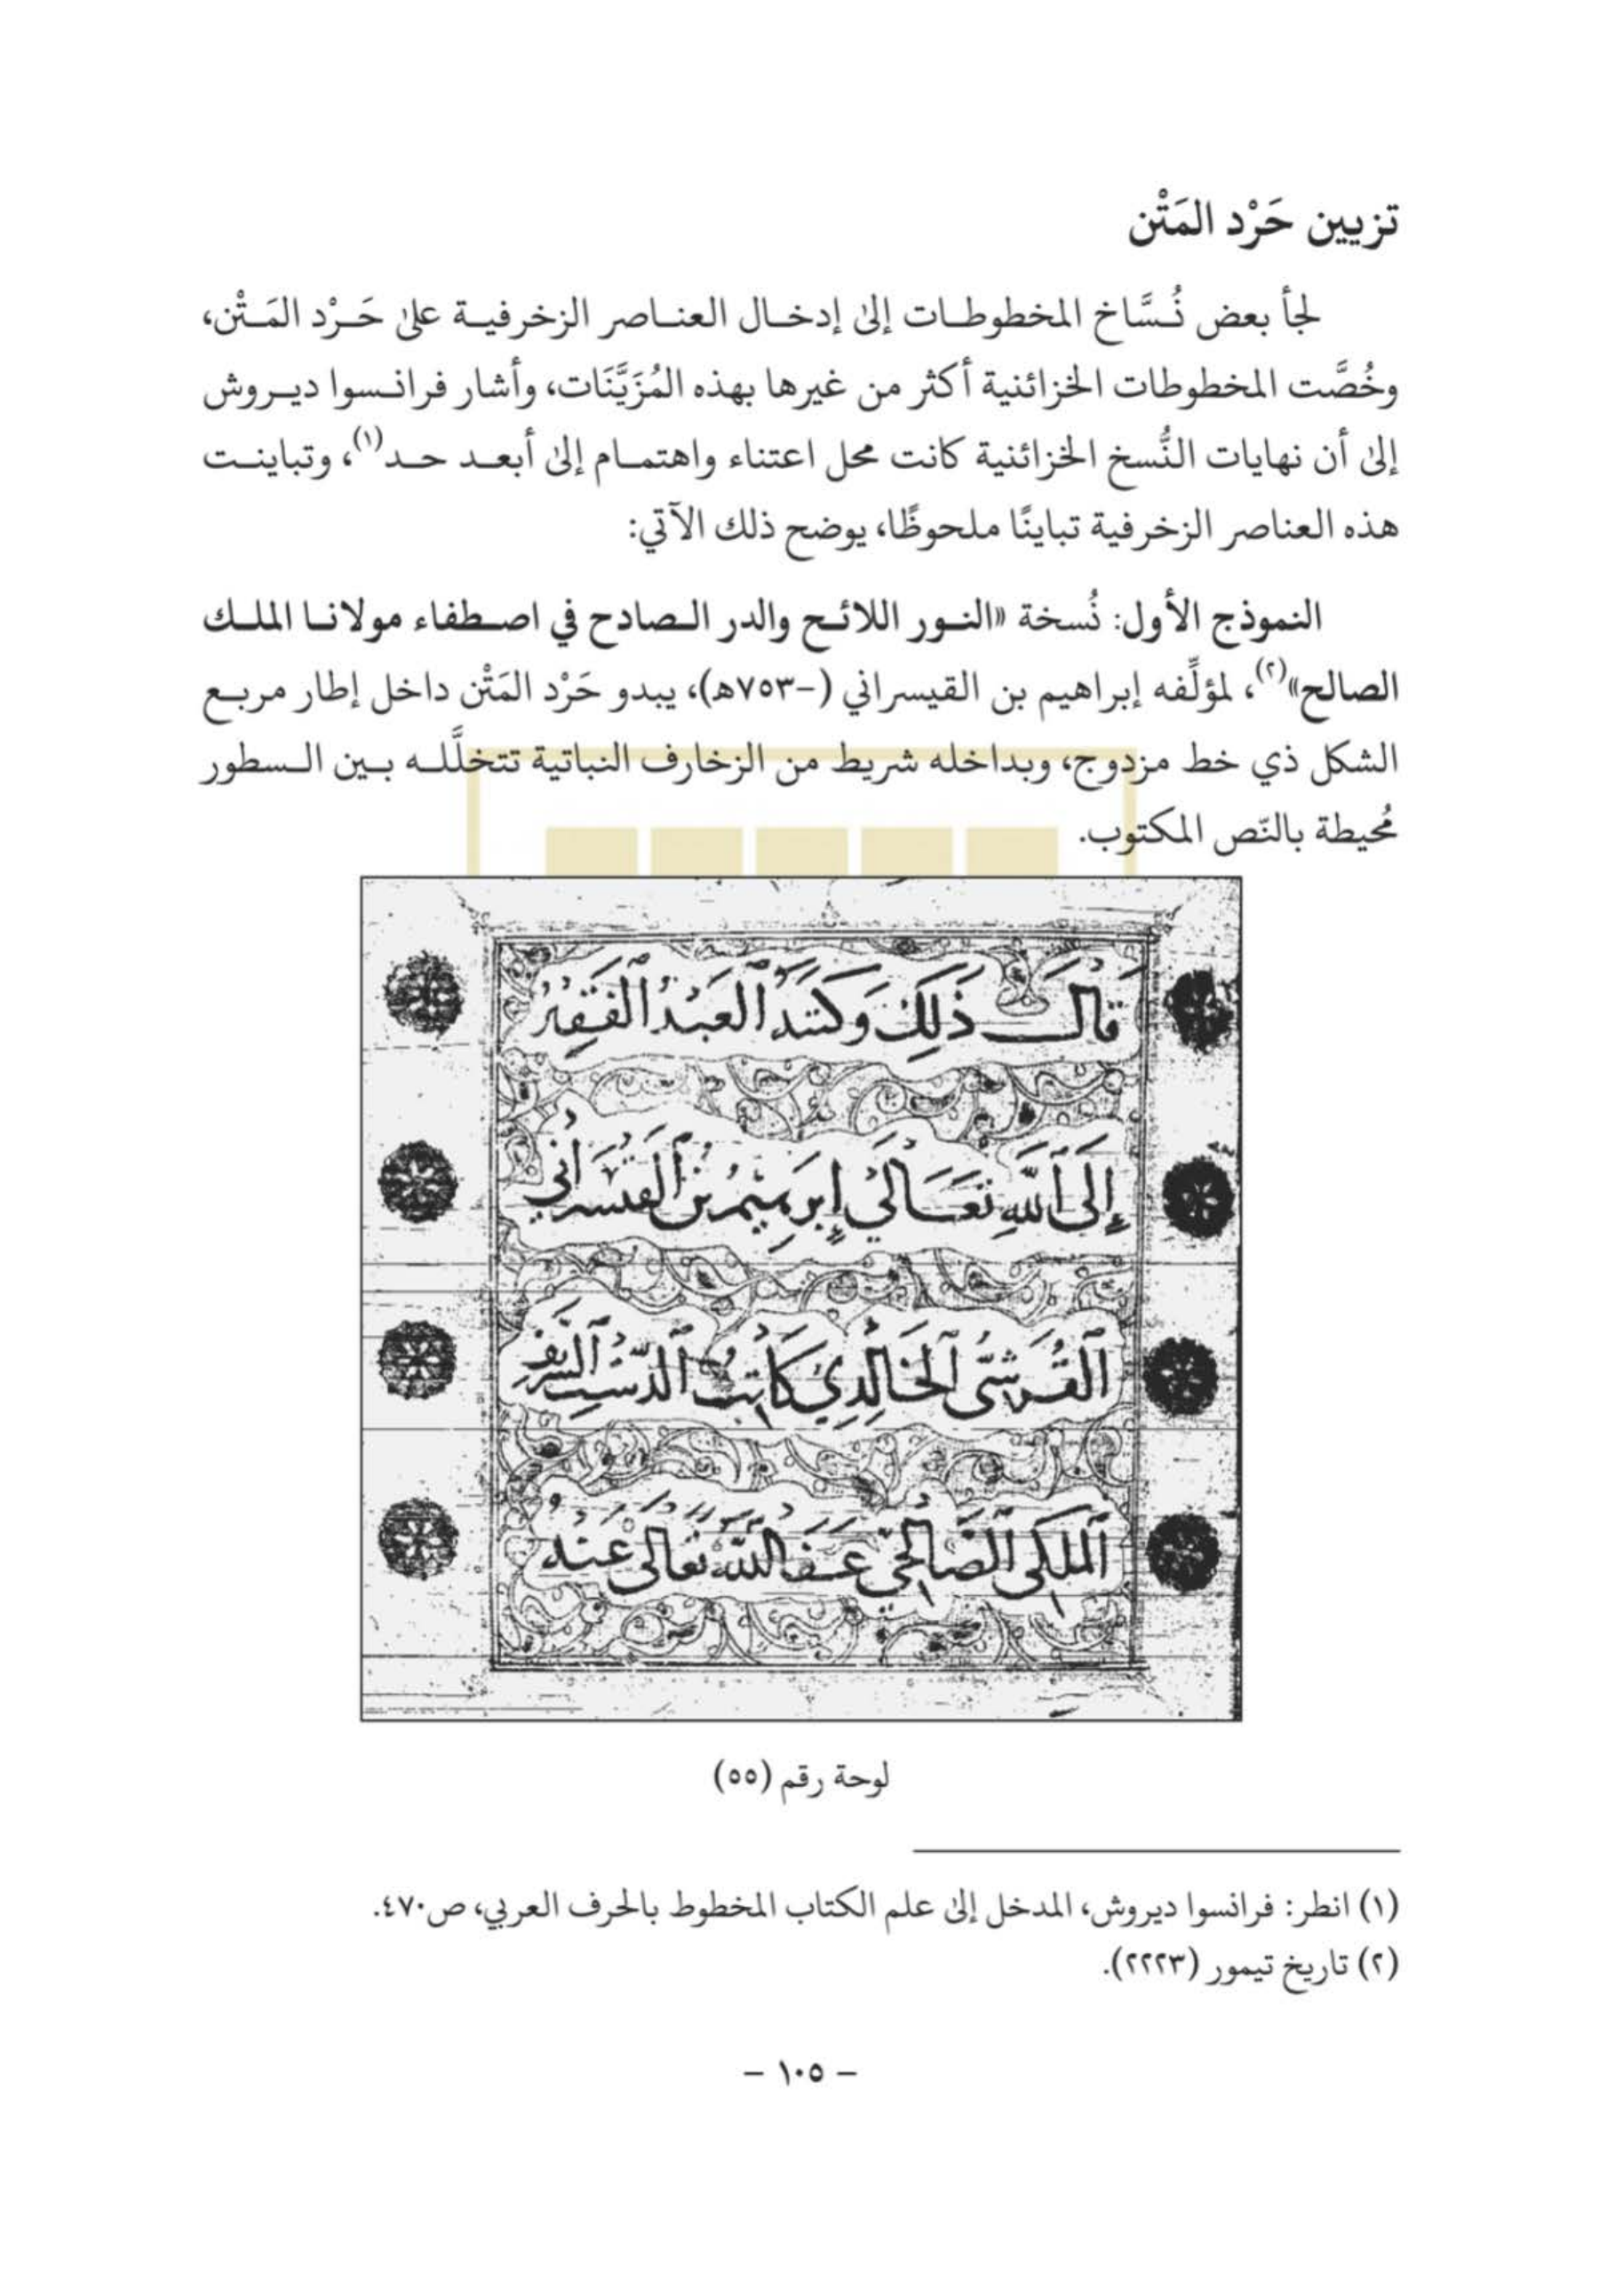 تزيين حَرْد المَتْن
لجأ بعض نُسَّاخ المخطوطات إلىٰ إدخال العناصر الزخرفية علىٰ حَرْد المَتْن،
وخُصَّت المخطوطات الخزائنية أكثر من غيرها بهذه المُزَيَّنَات، وأشار فرانسوا ديروش
إلىٰ أن نهايات النُّسخ الخزائنية كانت محل اعتناء واهتمام إلىٰ أبعد حد(١)، وتباينت
هذه العناصر الزخرفية تباينًا ملحوظًا، يوضح ذلك الآتي:
النموذج الأول: نُسخة «النور اللائح والدر الصادح في اصطفاء مولانا الملك
الصالح»(٢)، لمؤلِّفه إبراهيم بن القيسراني (-٧٥٣هـ)، يبدو حَرْد المَتْن داخل إطار مربع
الشكل ذي خط مزدوج، وبداخله شريط من الزخارف النباتية تتخلَّله بين السطور
مُحيطة بالنّص المكتوب.
قال ذَلِكَ وَكَتَبَهُ العَبْدُ الفَقِيرُ
إِلَى اللهِ تَعَالَى إِبرهيم بن القيسراني
القُرَشي الخَالِدِي كَاتِبُ الدَّسْتِ الشريف
الملكي الصَّالحي عَفَا اللهُ تَعَالَى عَنْهُ
لوحة رقم (٥٥)
(١) انظر: فرانسوا ديروش، المدخل إلىٰ علم الكتاب المخطوط بالحرف العربي، ص٤٧٠.
(٢) تاريخ تيمور (٢٢٢٣).
- ١٠٥ -